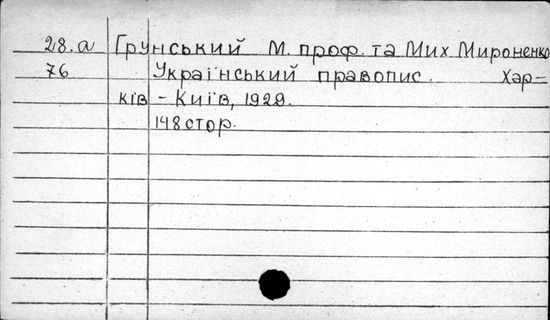 28.а Грунський М. проф. та Мих Мироненко
76 Український правопис. Хар-
ків - Київ, 1929.
148 стор.